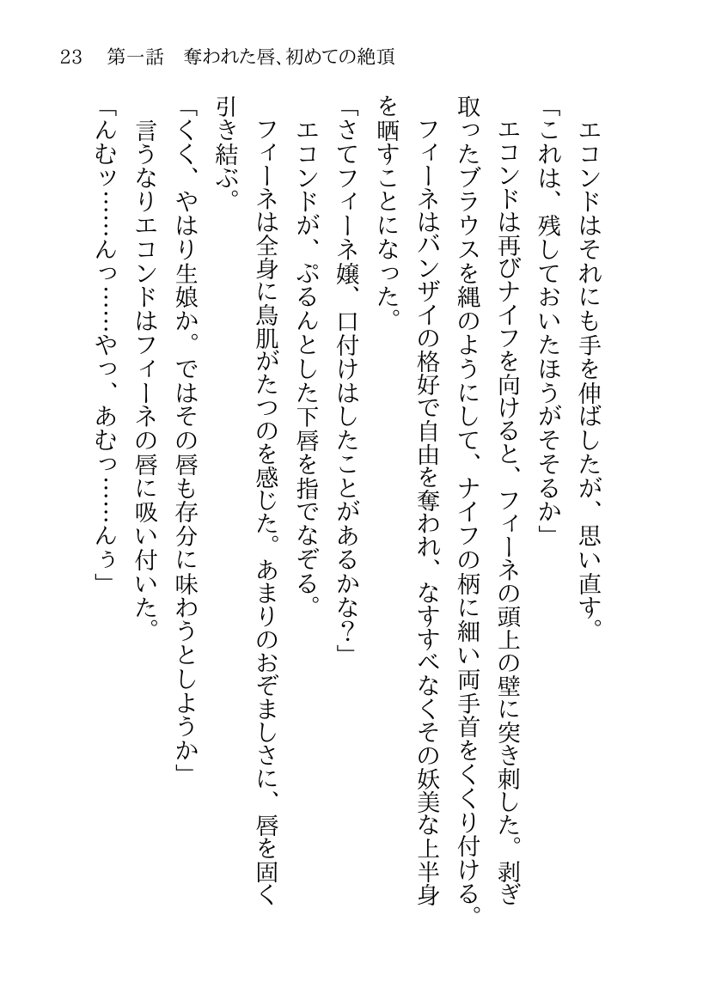 23　第一話　奪われた唇、初めての絶頂
　エコンドはそれにも手を伸ばしたが、思い直す。
「これは、残しておいたほうがそそるか」
　エコンドは再びナイフを向けると、フィーネの頭上の壁に突き刺した。剥ぎ
取ったブラウスを縄のようにして、ナイフの柄に細い両手首をくくり付ける。
　フィーネはバンザイの格好で自由を奪われ、なすすべなくその妖美な上半身
を晒すことになった。
「さてフィーネ嬢、口付けはしたことがあるかな？」
　エコンドが、ぷるんとした下唇を指でなぞる。
　フィーネは全身に鳥肌がたつのを感じた。あまりのおぞましさに、唇を固く
引き結ぶ。
「くく、やはり生娘か。ではその唇も存分に味わうとしようか」
　言うなりエコンドはフィーネの唇に吸い付いた。
「んむッ……んっ……やっ、あむっ……んぅ」